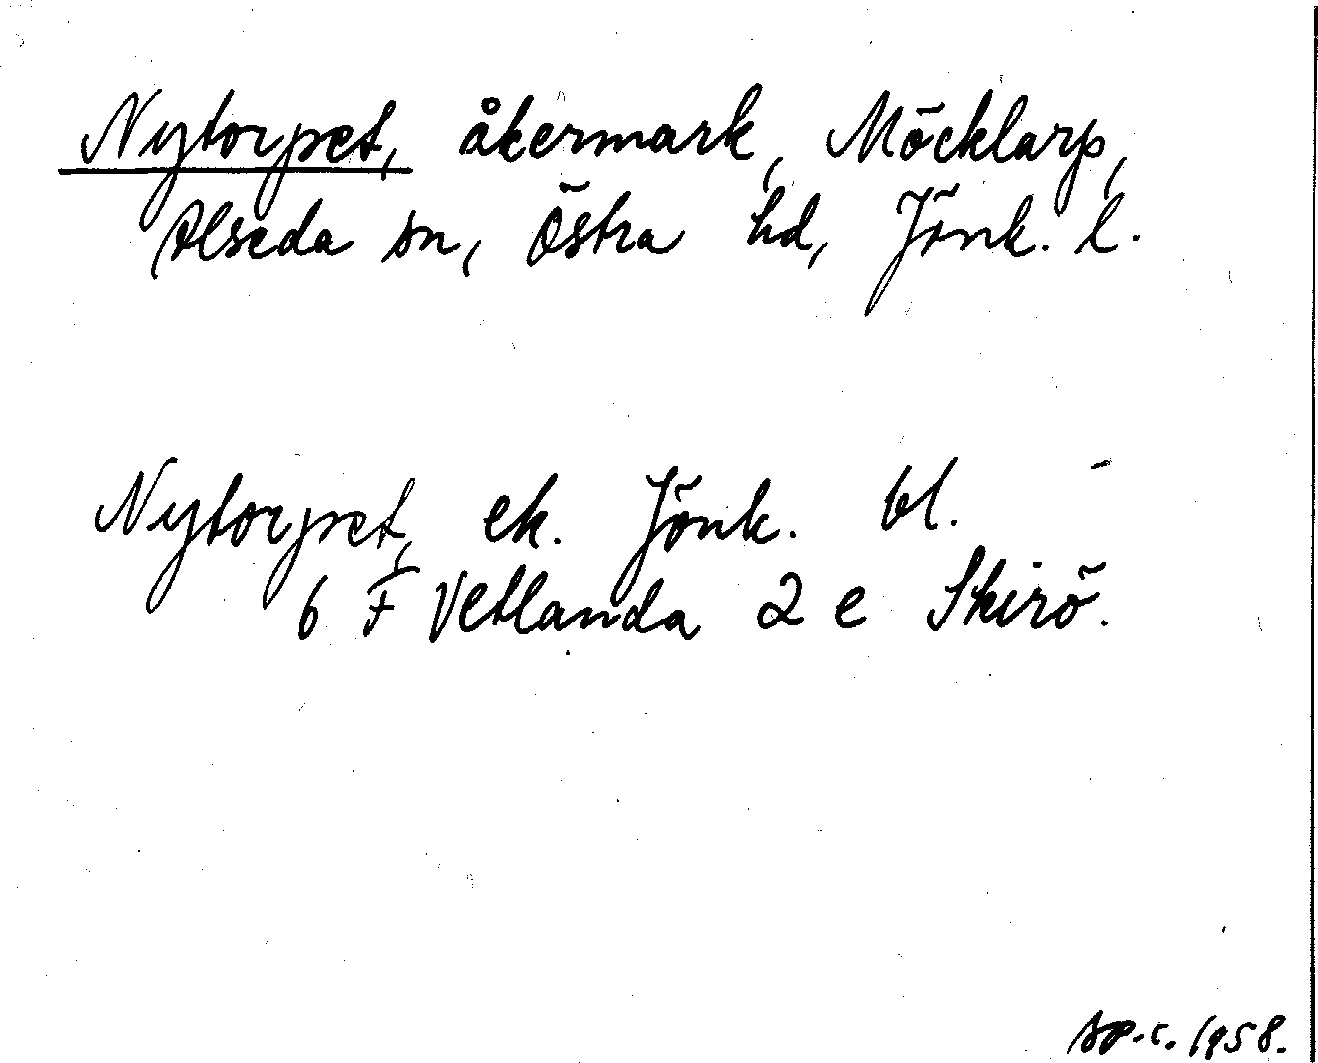 Nytorpet, åkermark, Möcklarp,
Alseda sn, Östra hd, Jönk. l.
Nytorpet, ek. Jönk. bl.
6 F Vetlanda 2 e Skirö.
1958.